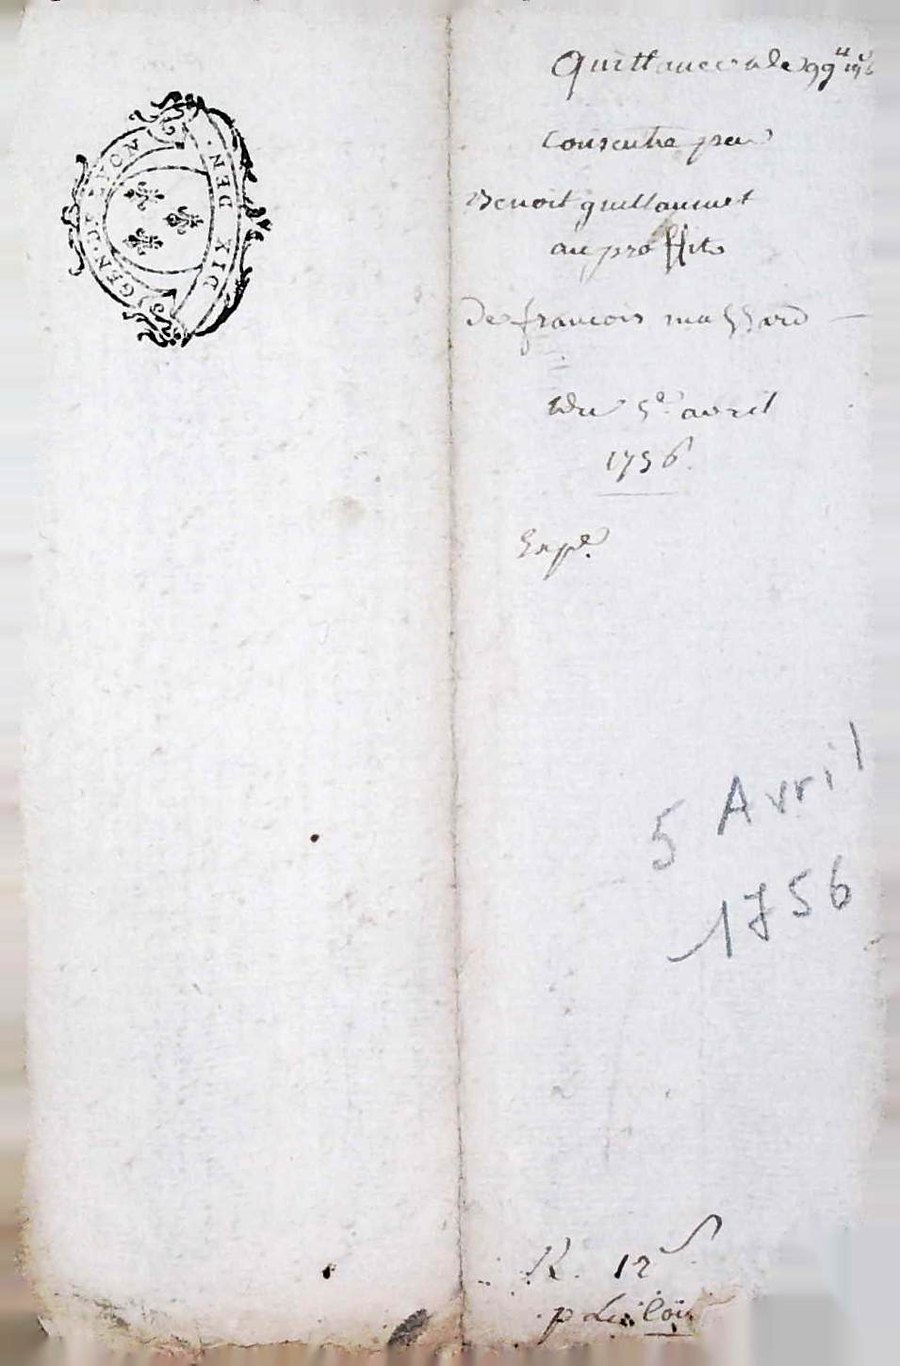 GEN. DE LYON
DIX DEN.
Quittance de 99ᵗᵗ
consentie par
Benoit guillaumet
au proffit
de francois massard
du 5ᵉ avril
1756.
Expᵉ.
5 Avril
1756
R. 12ˢ